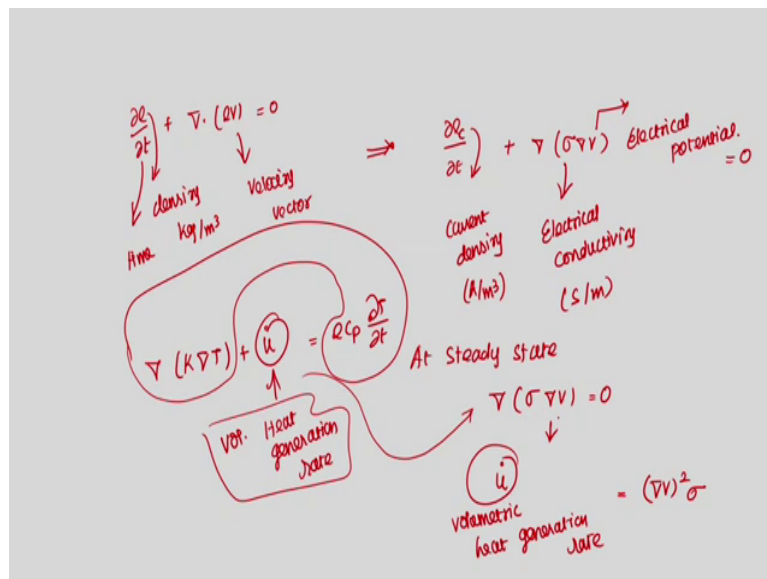 ∂ρ/∂t + ∇. (ρv) = 0
time
density
kg/m³
velocity
vector
⇒
∂ρc/∂t + ∇ (σ∇V)
Electrical
potential.
= 0
Current
density
(A/m³)
Electrical
conductivity
(S/m)
∇ (K∇T) + u̇ = ρCp ∂T/∂t
Vol. Heat
generation
rate
At steady state
∇ (σ ∇V) = 0
u̇ = (∇V)² σ
volumetric
heat generation
rate